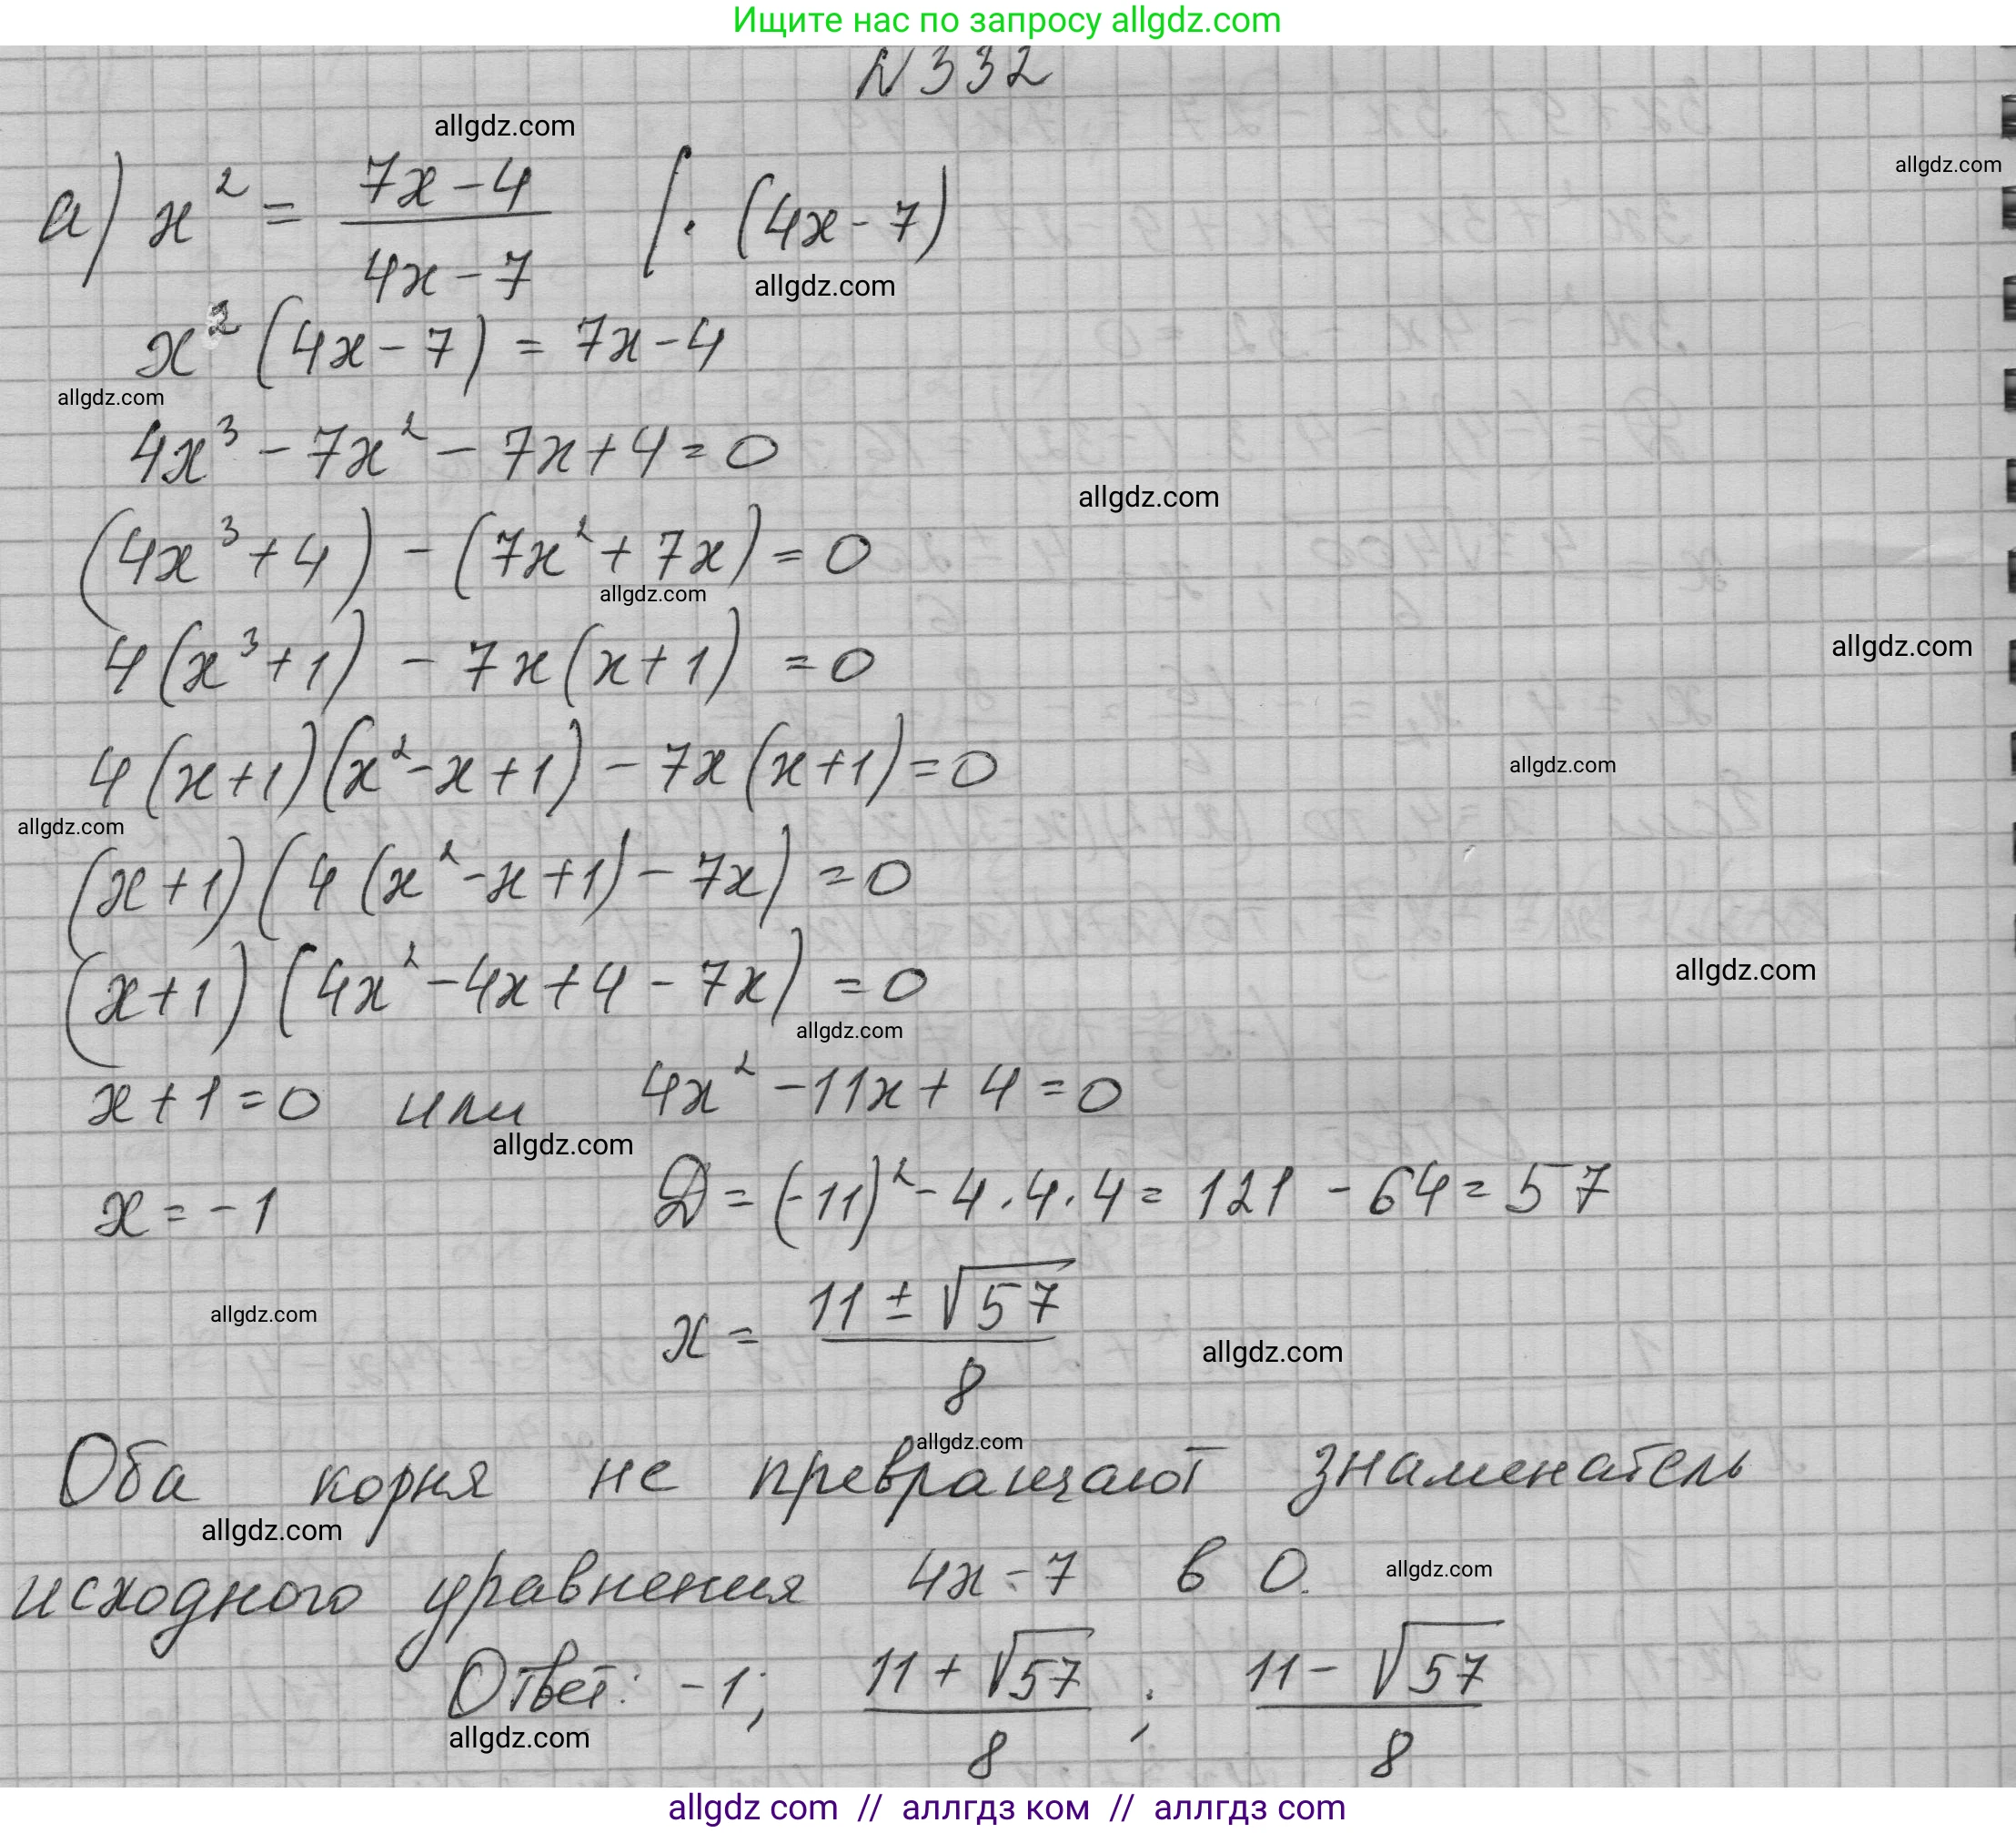 Ищите нас по запросу allgdz.com
N 332
allgdz.com
allgdz.com
а) x² = (7x - 4)/(4x - 7) | · (4x - 7)
allgdz.com
x² (4x - 7) = 7x - 4
allgdz.com
4x³ - 7x² - 7x + 4 = 0
allgdz.com
(4x³ + 4) - (7x² + 7x) = 0
allgdz.com
4(x³ + 1) - 7x(x + 1) = 0
allgdz.com
4(x+1)(x² - x + 1) - 7x(x+1) = 0
allgdz.com
allgdz.com
(x+1)(4(x² - x + 1) - 7x) = 0
allgdz.com
(x+1)(4x² - 4x + 4 - 7x) = 0
allgdz.com
x + 1 = 0 или 4x² - 11x + 4 = 0
allgdz.com
x = -1 D = (-11)² - 4 · 4 · 4 = 121 - 64 = 57
allgdz.com
x = (11 ± √57)/8
allgdz.com
allgdz.com
Оба корня не превращают знаменатель
allgdz.com
исходного уравнения 4x - 7 в 0.
allgdz.com
Ответ: -1; (11 + √57)/8 ; (11 - √57)/8
allgdz.com
allgdz com // аллгдз ком // аллгдз com